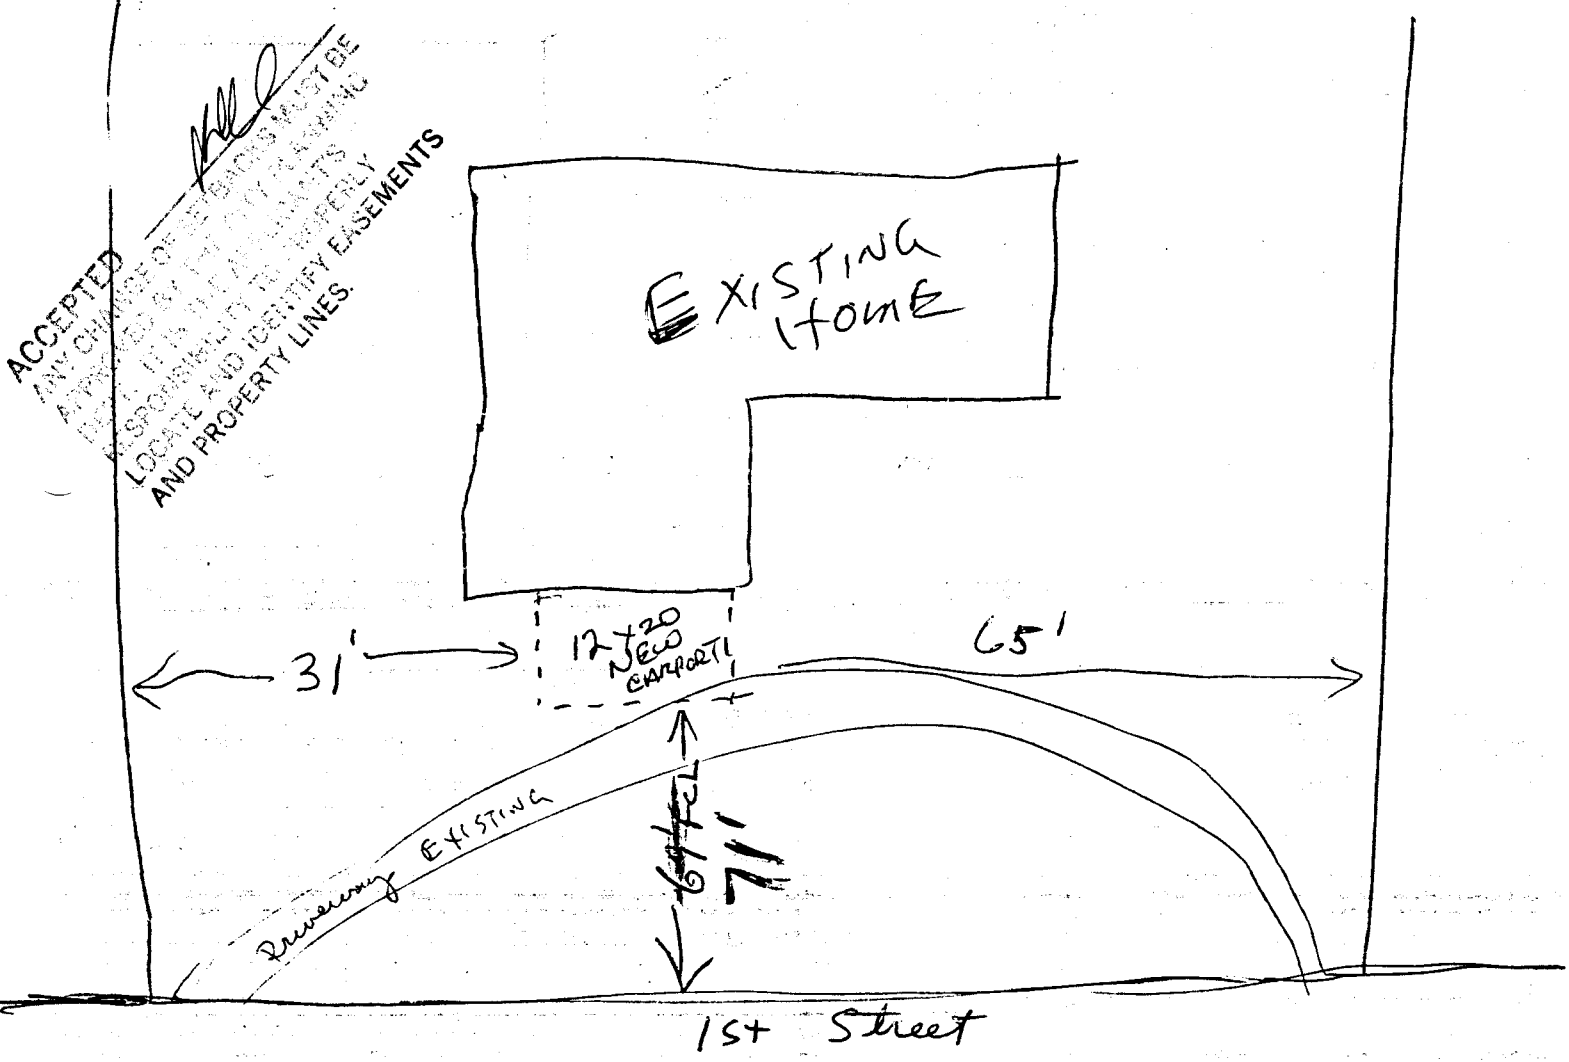 ACCEPTED
ANY CHANGE OF SETBACKS MUST BE
APPROVED BY THE CITY PLANNING
DEPT. IT IS THE APPLICANT'S
RESPONSIBILITY TO PROPERLY
LOCATE AND IDENTIFY EASEMENTS
AND PROPERTY LINES.
EXISTING
HOME
12x20
NEW
CARPORT
31'
65'
71'
EXISTING
Driveway
1st Street